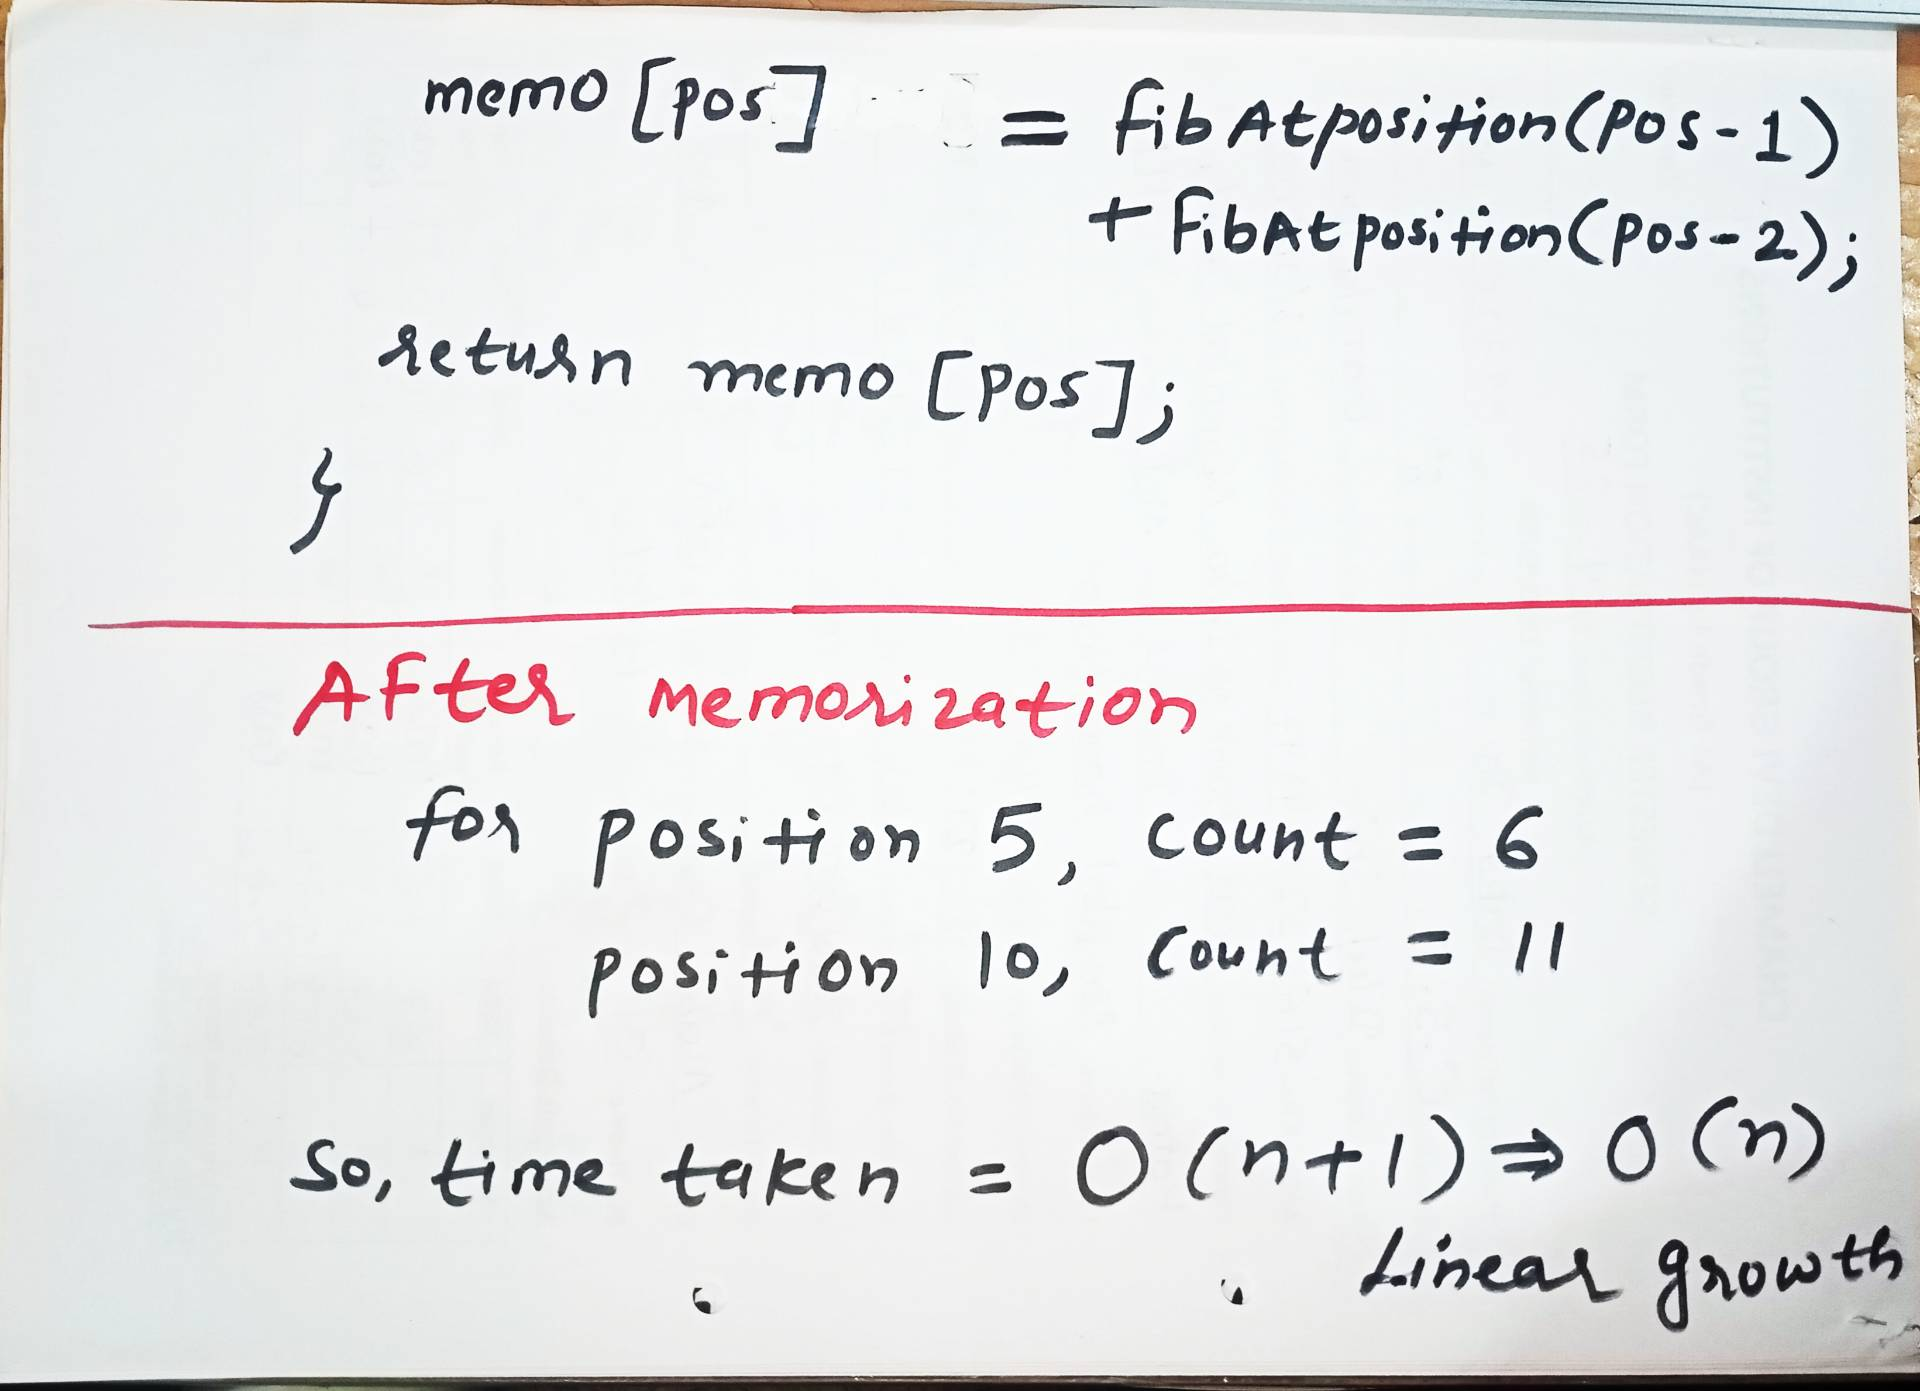 memo [pos] = fibAtposition(pos-1)
+ fibAtposition(pos-2);
return memo [pos];
}
After memorization
for position 5, count = 6
position 10, count = 11
So, time taken = O (n+1) ⇒ O (n)
Linear growth